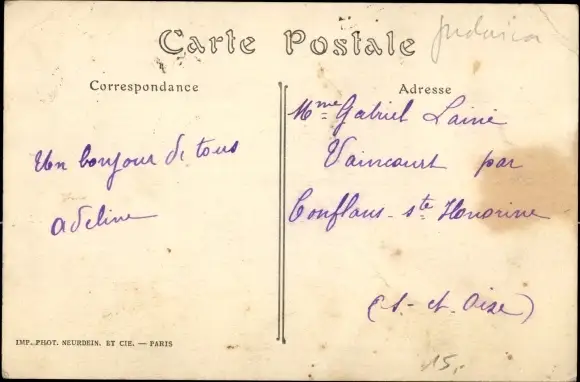 Carte Postale
Judaica
Correspondance
Adresse
Un bonjour de tous
Adeline
Mme Gabriel Lainé
Vaincourt par
Conflans-Ste Honorine
(S.-et-Oise)
IMP. PHOT. NEURDEIN. ET CIE. — PARIS
15,-